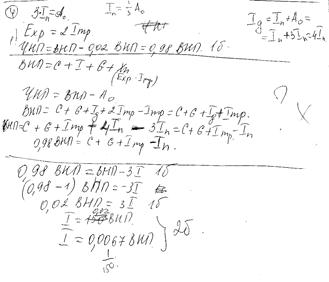 ④ 3·Iₙ = A₀. Iₙ = 1/3 A₀
I_g = Iₙ + A₀ =
= Iₙ + 3Iₙ = 4Iₙ
Exp = 2 Imp
ЧНП = ВНП - 0,02 ВНП = 0,98 ВНП. 1б
ВНП = C + I + G + Xn
(Exp - Imp)
ЧНП = ВНП - A₀
ВНП = C + G + I_g + 2Imp - Imp = C + G + I_g + Imp.
ВНП = C + G + Imp + 4Iₙ - 3Iₙ = C + G + Imp - Iₙ
0,98 ВНП = C + G + Imp - Iₙ.
? X
0,98 ВНП = ВНП - 3I 1б
(0,98 - 1) ВНП = -3I
0,02 ВНП = 3I 1б
I = ВНП.
I = 0,0067 ВНП } 2б
1/150